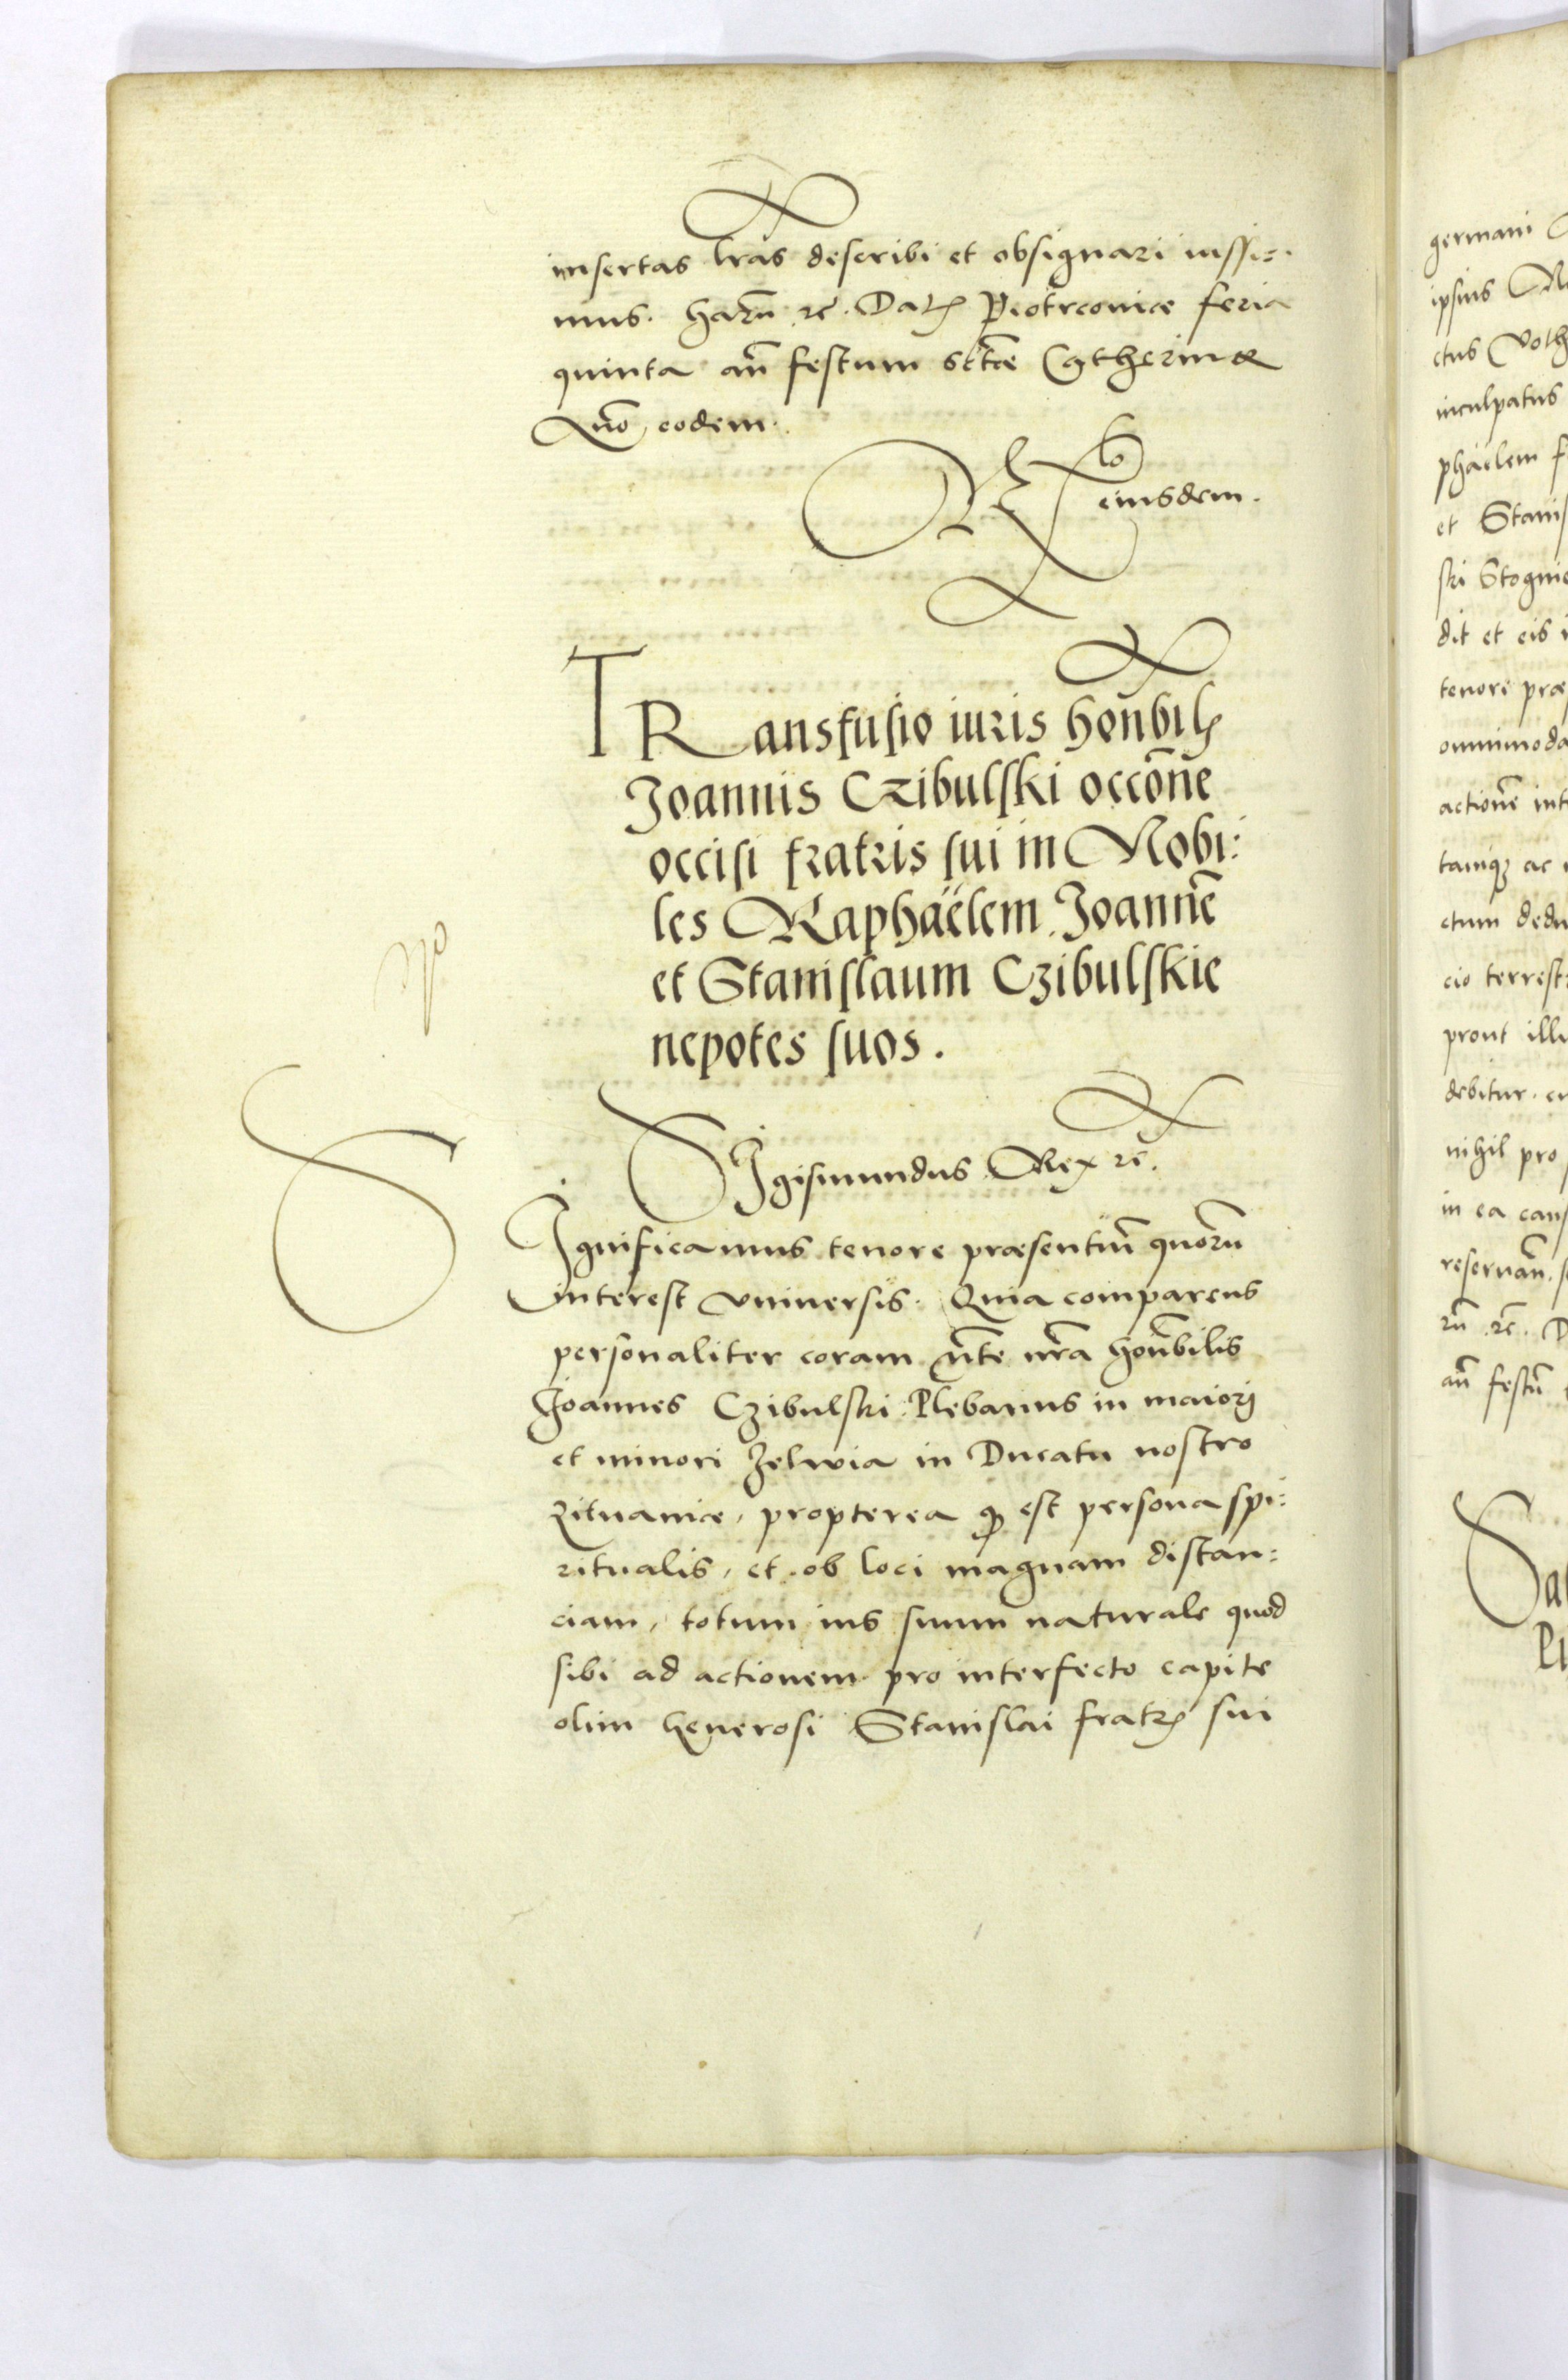 insertas l̃ras describi et obsignari iussi=
mus. harũ rc̃. Datꝭ Piotrcoviæ feria
quinta añ festum sc̃tæ Catherinæ
Anõ eodem.
Rlõ
eiusdem.
TRansfusio iuris hon̄bilꝭ
Joannis Czibulski occõne
occisi fratris sui in Nobi:
les Raphaëlem Joannẽ
et Stanislaum Czibulskie
nepotes suos.
SIgismundus Rex rc̃.
SIgnificamus tenore præsentiũ quorũ
interest vniversis. Quia comparens
personaliter coram n̄te nr̃a hon̄bilis
Joannes Czibulski Plebanus in maiori
et minori Zelwia in Ducatu nostro
Lituaniæ, propterea qꝫ est persona spi:
ritualis, et ob loci magnam distan:
ciam, totum ius suum naturale quod
sibi ad actionem pro interfecto capite
olim Generosi Stanislai fratrꝭ sui
germani
ipsius
ctus
inculpatus
phaëlem
et Stanis
ski Stognie
dit et eis
tenore præ
omnimoda
actionẽ int
tamqꝫ ac
ctum dedu
cio terrest
prout ill
debitur.
nihil pro
in ea caus
reservañ.
rũ rc̃. D
añ festũ